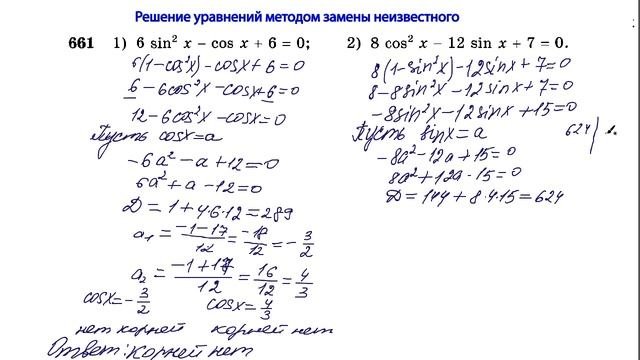 Решение уравнений методом замены неизвестного
661 1) 6 sin² x – cos x + 6 = 0;
6(1-cos²x)-cosx+6=0
6-6cos²x-cosx+6=0
12-6cos²x-cosx=0
Пусть cosx=a
-6a²-a+12=0
6a²+a-12=0
D=1+4·6·12=289
a₁=(-1-17)/12=-18/12=-3/2
a₂=(-1+17)/12=16/12=4/3
cosx=-3/2 cosx=4/3
нет корней корней нет
Ответ: корней нет
2) 8 cos² x – 12 sin x + 7 = 0.
8(1-sin²x)-12sinx+7=0
8-8sin²x-12sinx+7=0
-8sin²x-12sinx+15=0
Пусть sinx=a
624
-8a²-12a+15=0
8a²+12a-15=0
D=144+8·4·15=624